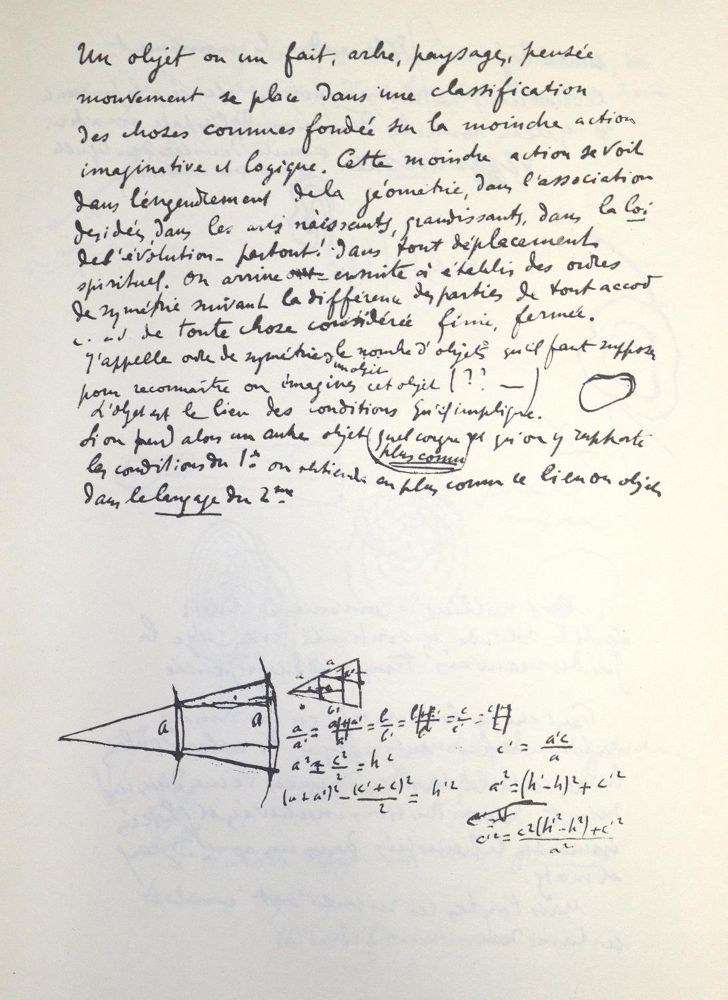 Un objet ou un fait, arbre, paysage, pensée
mouvement se place dans une classification
des choses connues fondée sur la moindre action
imaginative et logique. Cette moindre action se voit
dans l'engendrement de la géométrie, dans l'association
des idées, dans les arts naissants, grandissants, dans la loi
de l'évolution - partout! dans tout déplacement
spirituel. On arrive ensuite à établir des ordres
de symétrie suivant la différence des parties de tout accord
c. à d de toute chose considérée finie, fermée.
J'appelle ordre de symétrie le nombre d'objets qu'il faut supposer
un objet
pour reconnaître ou imaginer cet objet (?? —)
L'objet est le lien des conditions qu'il implique.
Si on prend alors un autre objet (quelconque et qu'on y rapporte
plus connu
les conditions du 1er on obtiendra en plus connu ce lien ou objet
dans le langage du 2me
a a
a
a/a' = = b/b' = = c/c' =
c' = a'c/a
a² ± c²/2 = h²
(a+a')² - (c'+c)²/2 = h'²
a'² = (h'-h)² + c'²
c'² = c²(h'²-h²)+c'²/a²